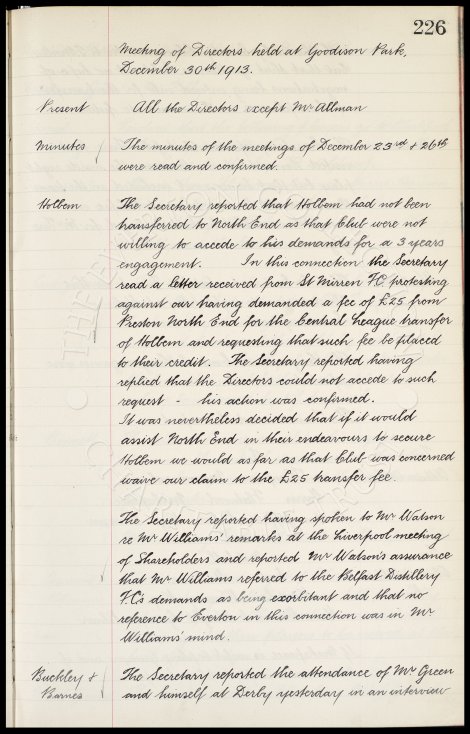 226
Meeting of Directors held at Goodison Park,
December 30th 1913.
Present All the Directors except Mr Allman
Minutes The minutes of the meetings of December 23rd & 26th
were read and confirmed.
Holbem The Secretary reported that Holbem had not been
transferred to North End as that Club were not
willing to accede to his demands for a 3 years
engagement. In this connection the Secretary
read a letter received from St Mirren F.C. protesting
against our having demanded a fee of £25 from
Preston North End for the Central League transfer
of Holbem and requesting that such fee be placed
to their credit. The Secretary reported having
replied that the Directors could not accede to such
request - his action was confirmed.
It was nevertheless decided that if it would
assist North End in their endeavours to secure
Holbem we would as far as that Club was concerned
waive our claim to the £25 transfer fee.
The Secretary reported having spoken to Mr Watson
re Mr Williams' remarks at the Liverpool meeting
of Shareholders and reported Mr Watson's assurance
that Mr Williams referred to the Belfast Distillery
F.C's demands as being exorbitant and that no
reference to Everton in this connection was in Mr
Williams' mind.
Buckley & The Secretary reported the attendance of Mr Green
Barnes and himself at Derby yesterday in an interview